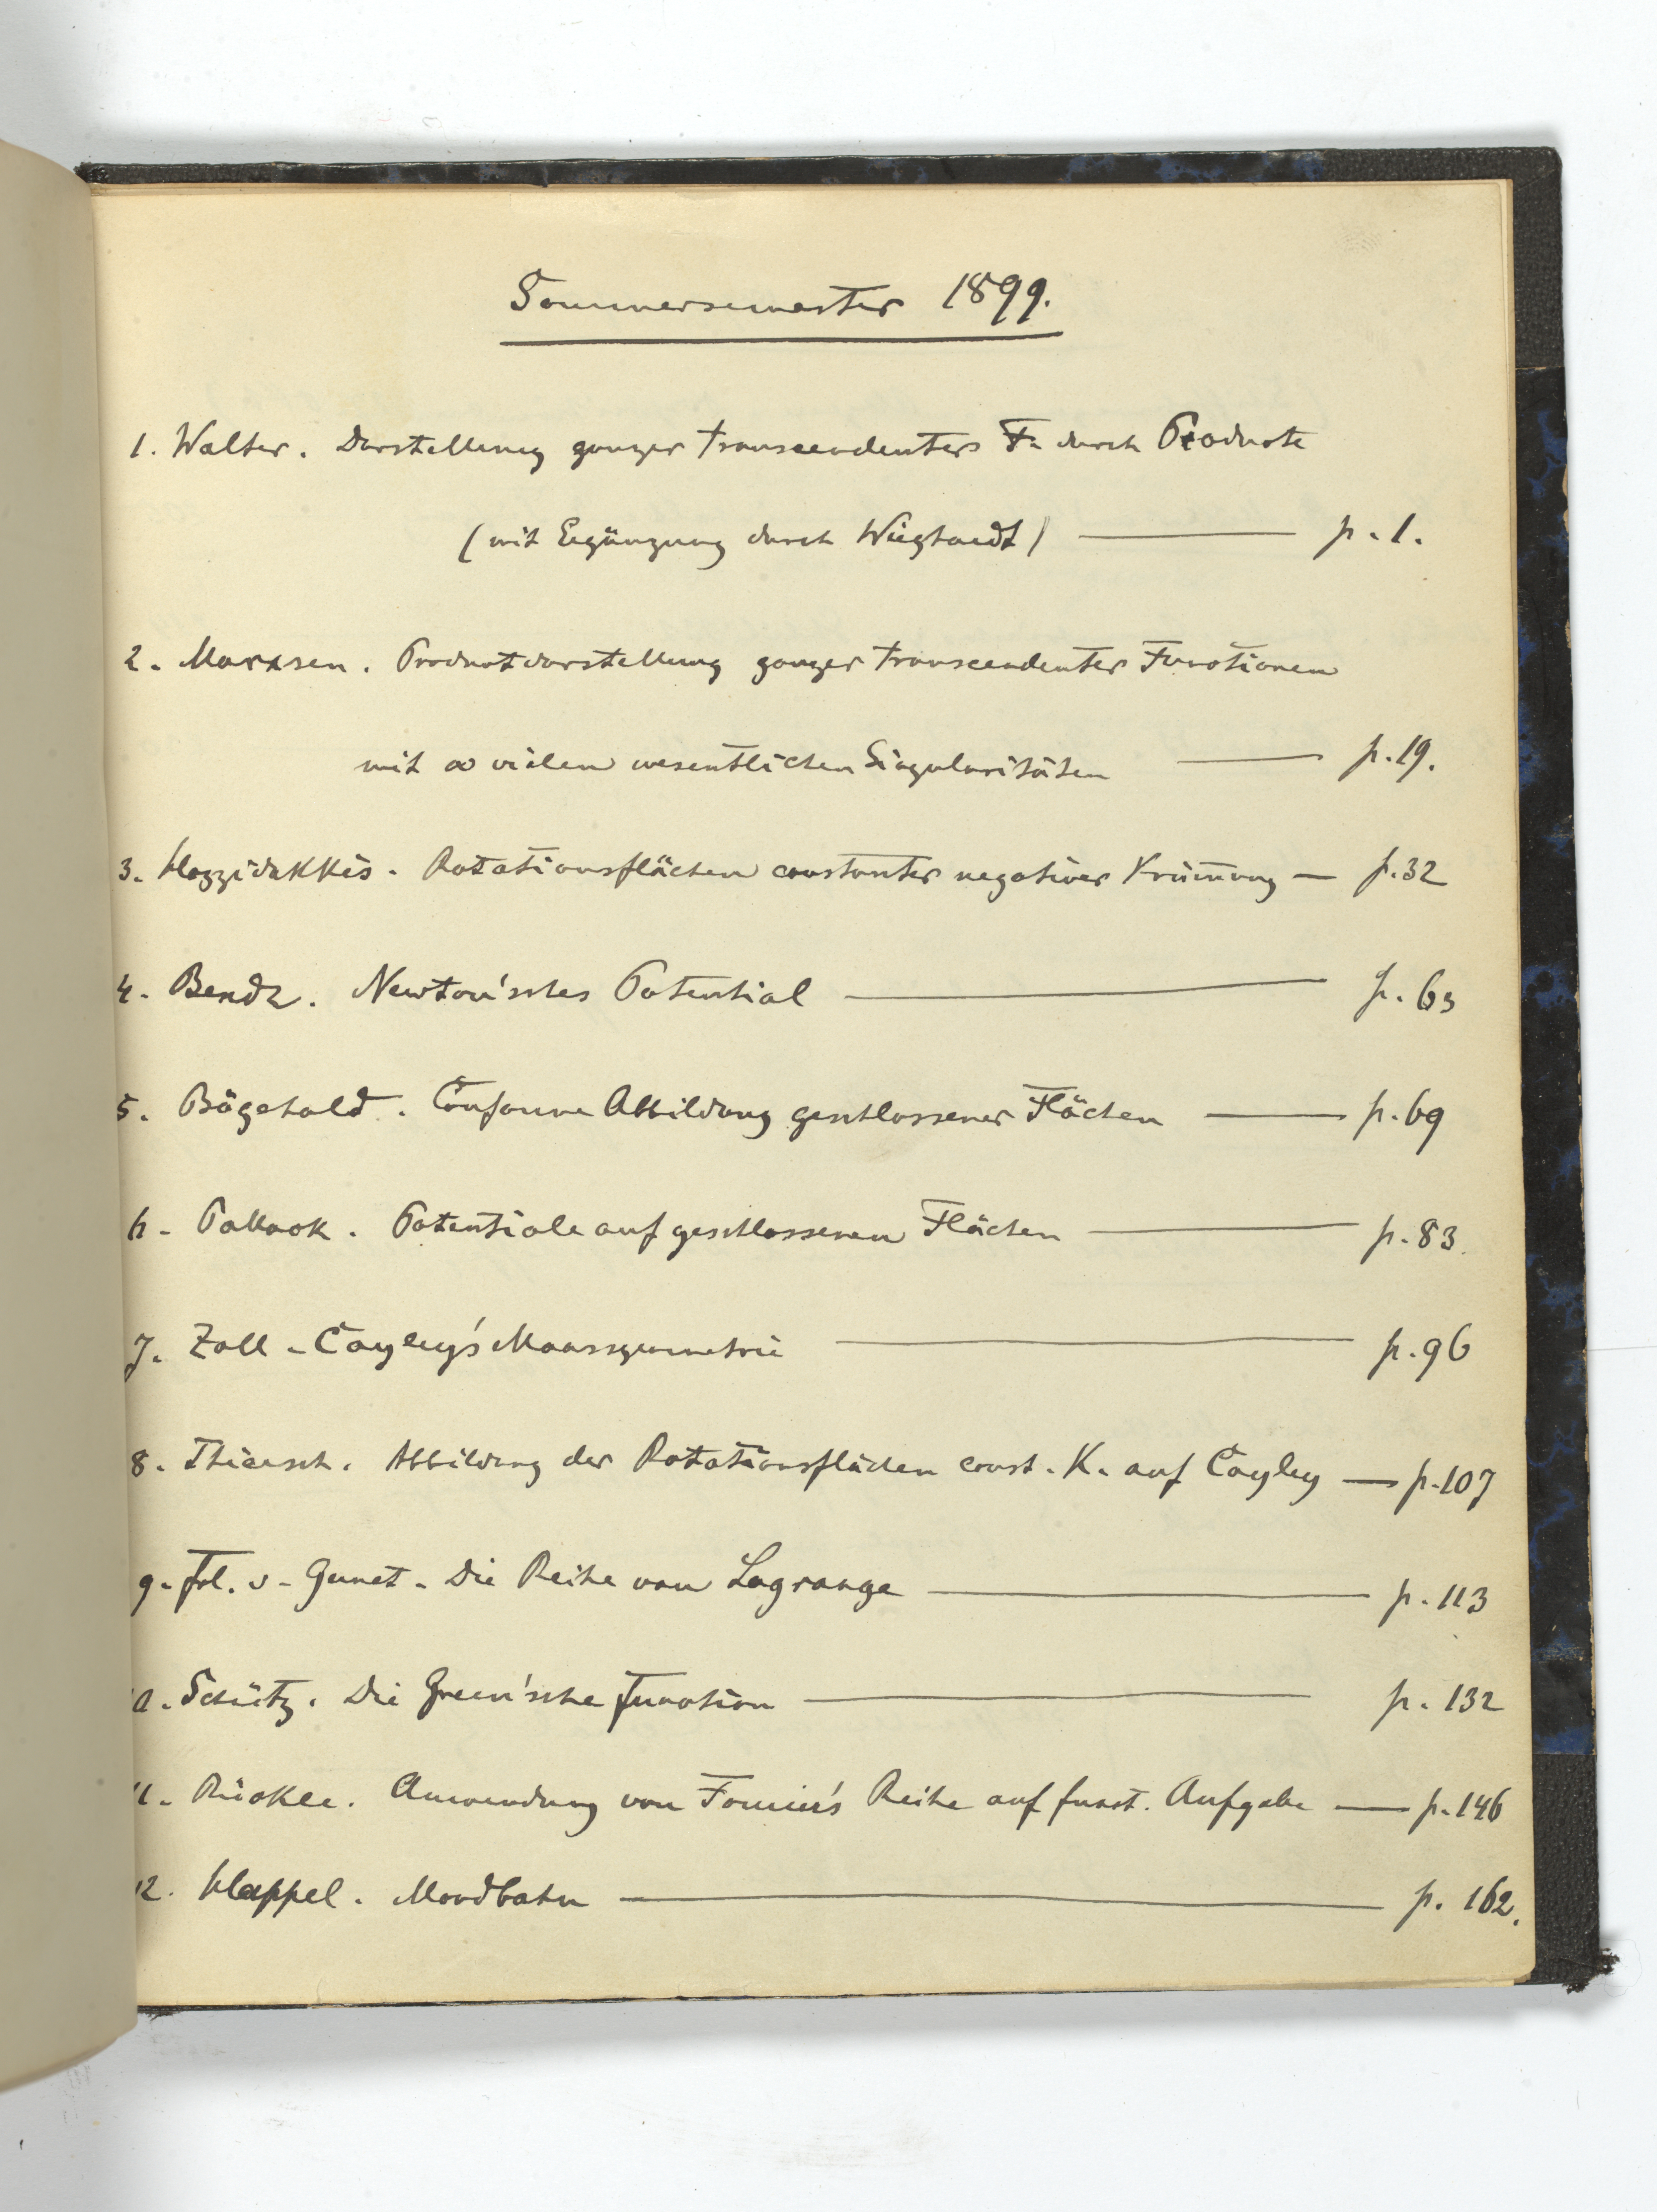 Sommersemester 1899.
1. Walter. Darstellung ganzer transcendenter F. durch Producte
(mit Ergänzung durch Wieghardt) — p. 1.
2. Marxsen. Productdarstellung ganzer transcendenter Functionen
mit ∞ vielen wesentlichen Singularitäten — p. 19.
3. Hazzidakkis. Rotationsflächen constanter negativer Krümmung — p. 32
4. Bendz. Newton'sches Potential — p. 63
5. Bögehold. Conforme Abbildung geschlossener Flächen — p. 69
6. Pollack. Potentiale auf geschlossenen Flächen — p. 83.
7. Zoll. Cayley's Maassgeometrie — p. 96
8. Thiersch. Abbildung der Rotationsflächen const. K. auf Cayley — p. 107
9. Frl. v. Die Reihe von Lagrange — p. 113
10. Schütz. Die Green'sche Function — p. 132
11. Rückle. Anwendung von Fourier's Reihe auf funct. Aufgabe — p. 146
12. Happel. Mondbahn — p. 162.